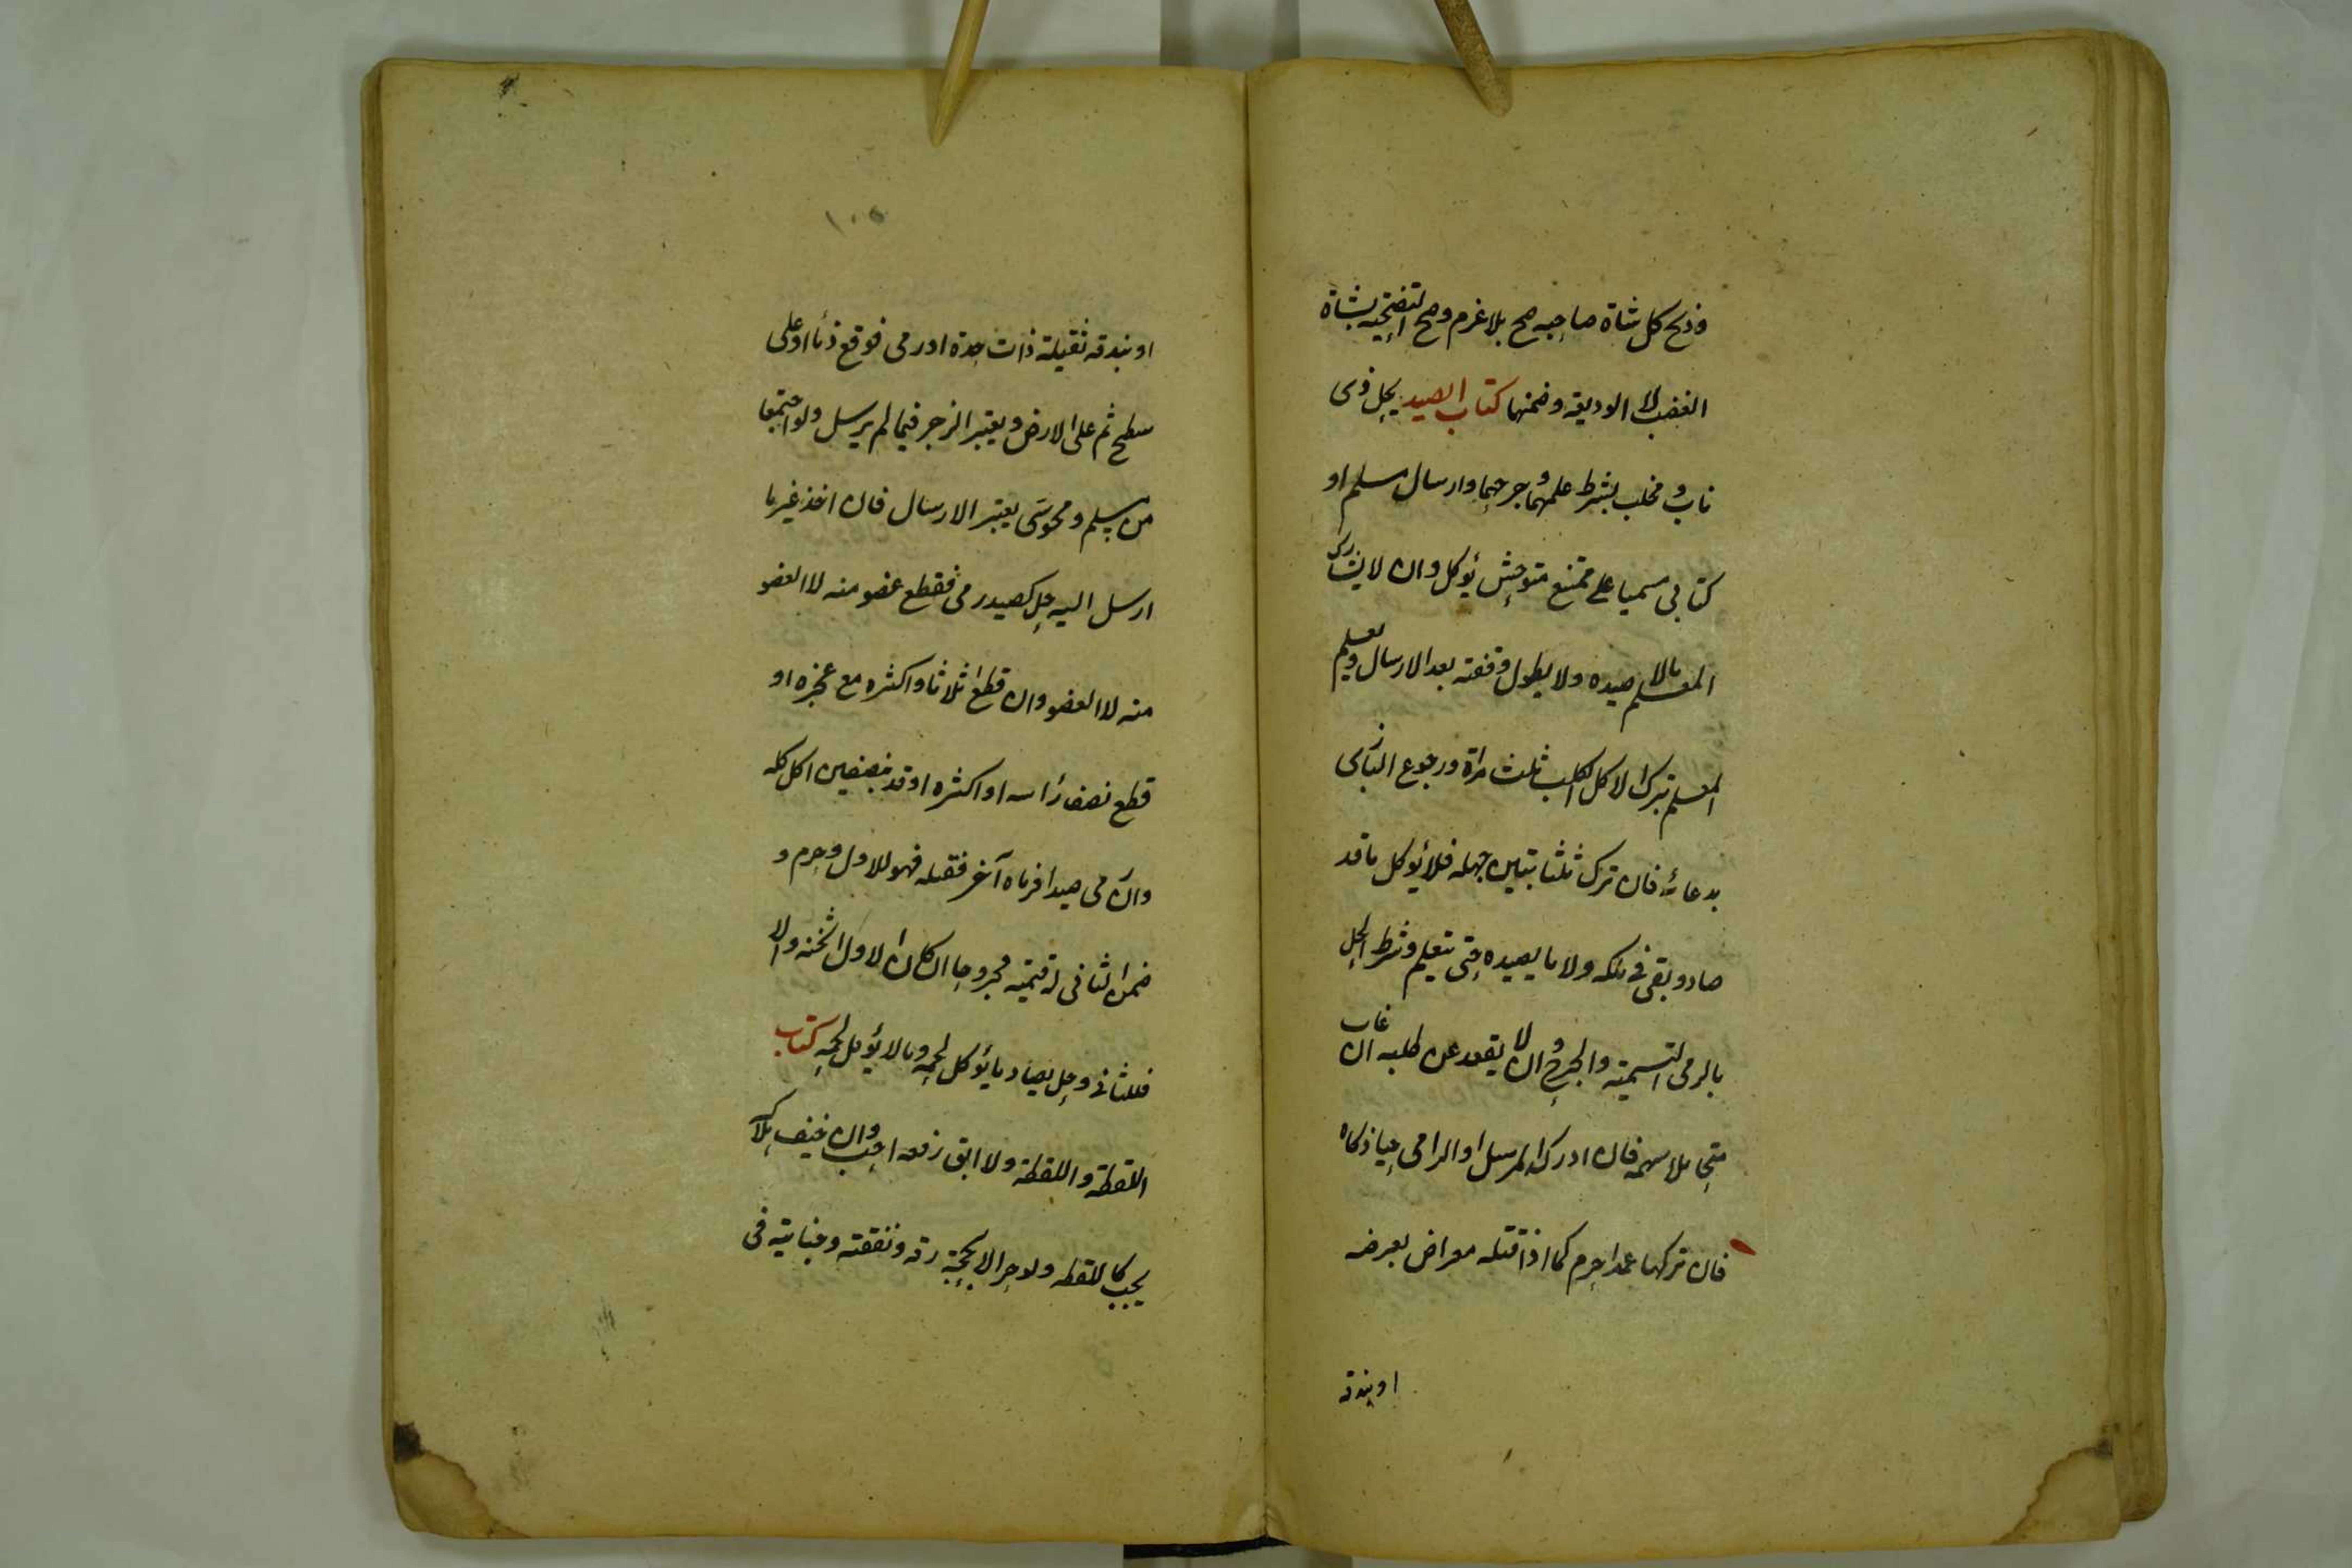 وذبح كل شاة صاحبه صح بلا غرم وصح التضحية بشاة
الغصب لا الوديعة وضمنها كتاب الصيد يحل ذى
ناب و مخلب بشرط علمهما و جرحهما وارسال مسلم او
كتابى مسميا على ممتنع متوحش يؤكل وان لا يشارك
المعلم ما لا يحل صيده ولا يطول وقفته بعد الارسال ويعلم
المعلم بترك الاكل الكلب ثلث مراة ورجوع البازى
بدعائه فان ترك ثلثا تبين جهله فلا يؤكل ما قد
صاد و بقى فى ملكه ولا ما يصيده حتى يتعلم وشرط الحل
بالرمى التسمية والجرح و ان لا يقعد عن طلبه ان غاب
متحاملا سهمه فان ادركه المرسل او الرامى حيا ذكاه
فان تركها عمدا حرم كما اذا قتله معراض بعرضه
او بندقه
١٠٥
او بندقه ثقيلة ذات حدة او رمى فوقع فى ماء او على
سطح ثم على الارض ويعتبر الزجر فيما لم يرسل ولو اجتمعا
من مسلم و مجوسى يعتبر الارسال فان اخذ غير ما
ارسل اليه حل كصيد رمى فقطع عضو منه لا العضو
منه لا العضو وان قطع اثلاثا واكثره مع عجزه او
قطع نصف رأسه او اكثره او قد بنصفين اكل كله
وان رمى صيدا فرماه آخر فقتله فهو للاول وحرم و
ضمن الثانى له قيمته مجروحا ان كان الاول اثخنه والا
فللثانى وحل يصاد ما يؤكل لحمه وما لا يؤكل لحمه كتاب
اللقطة واللقطة ولا ابق رفعه احب و ان خيف هلاكه
يجب كاللقطه ولو حر الا بحجة رقه ونفقته وجنايته فى